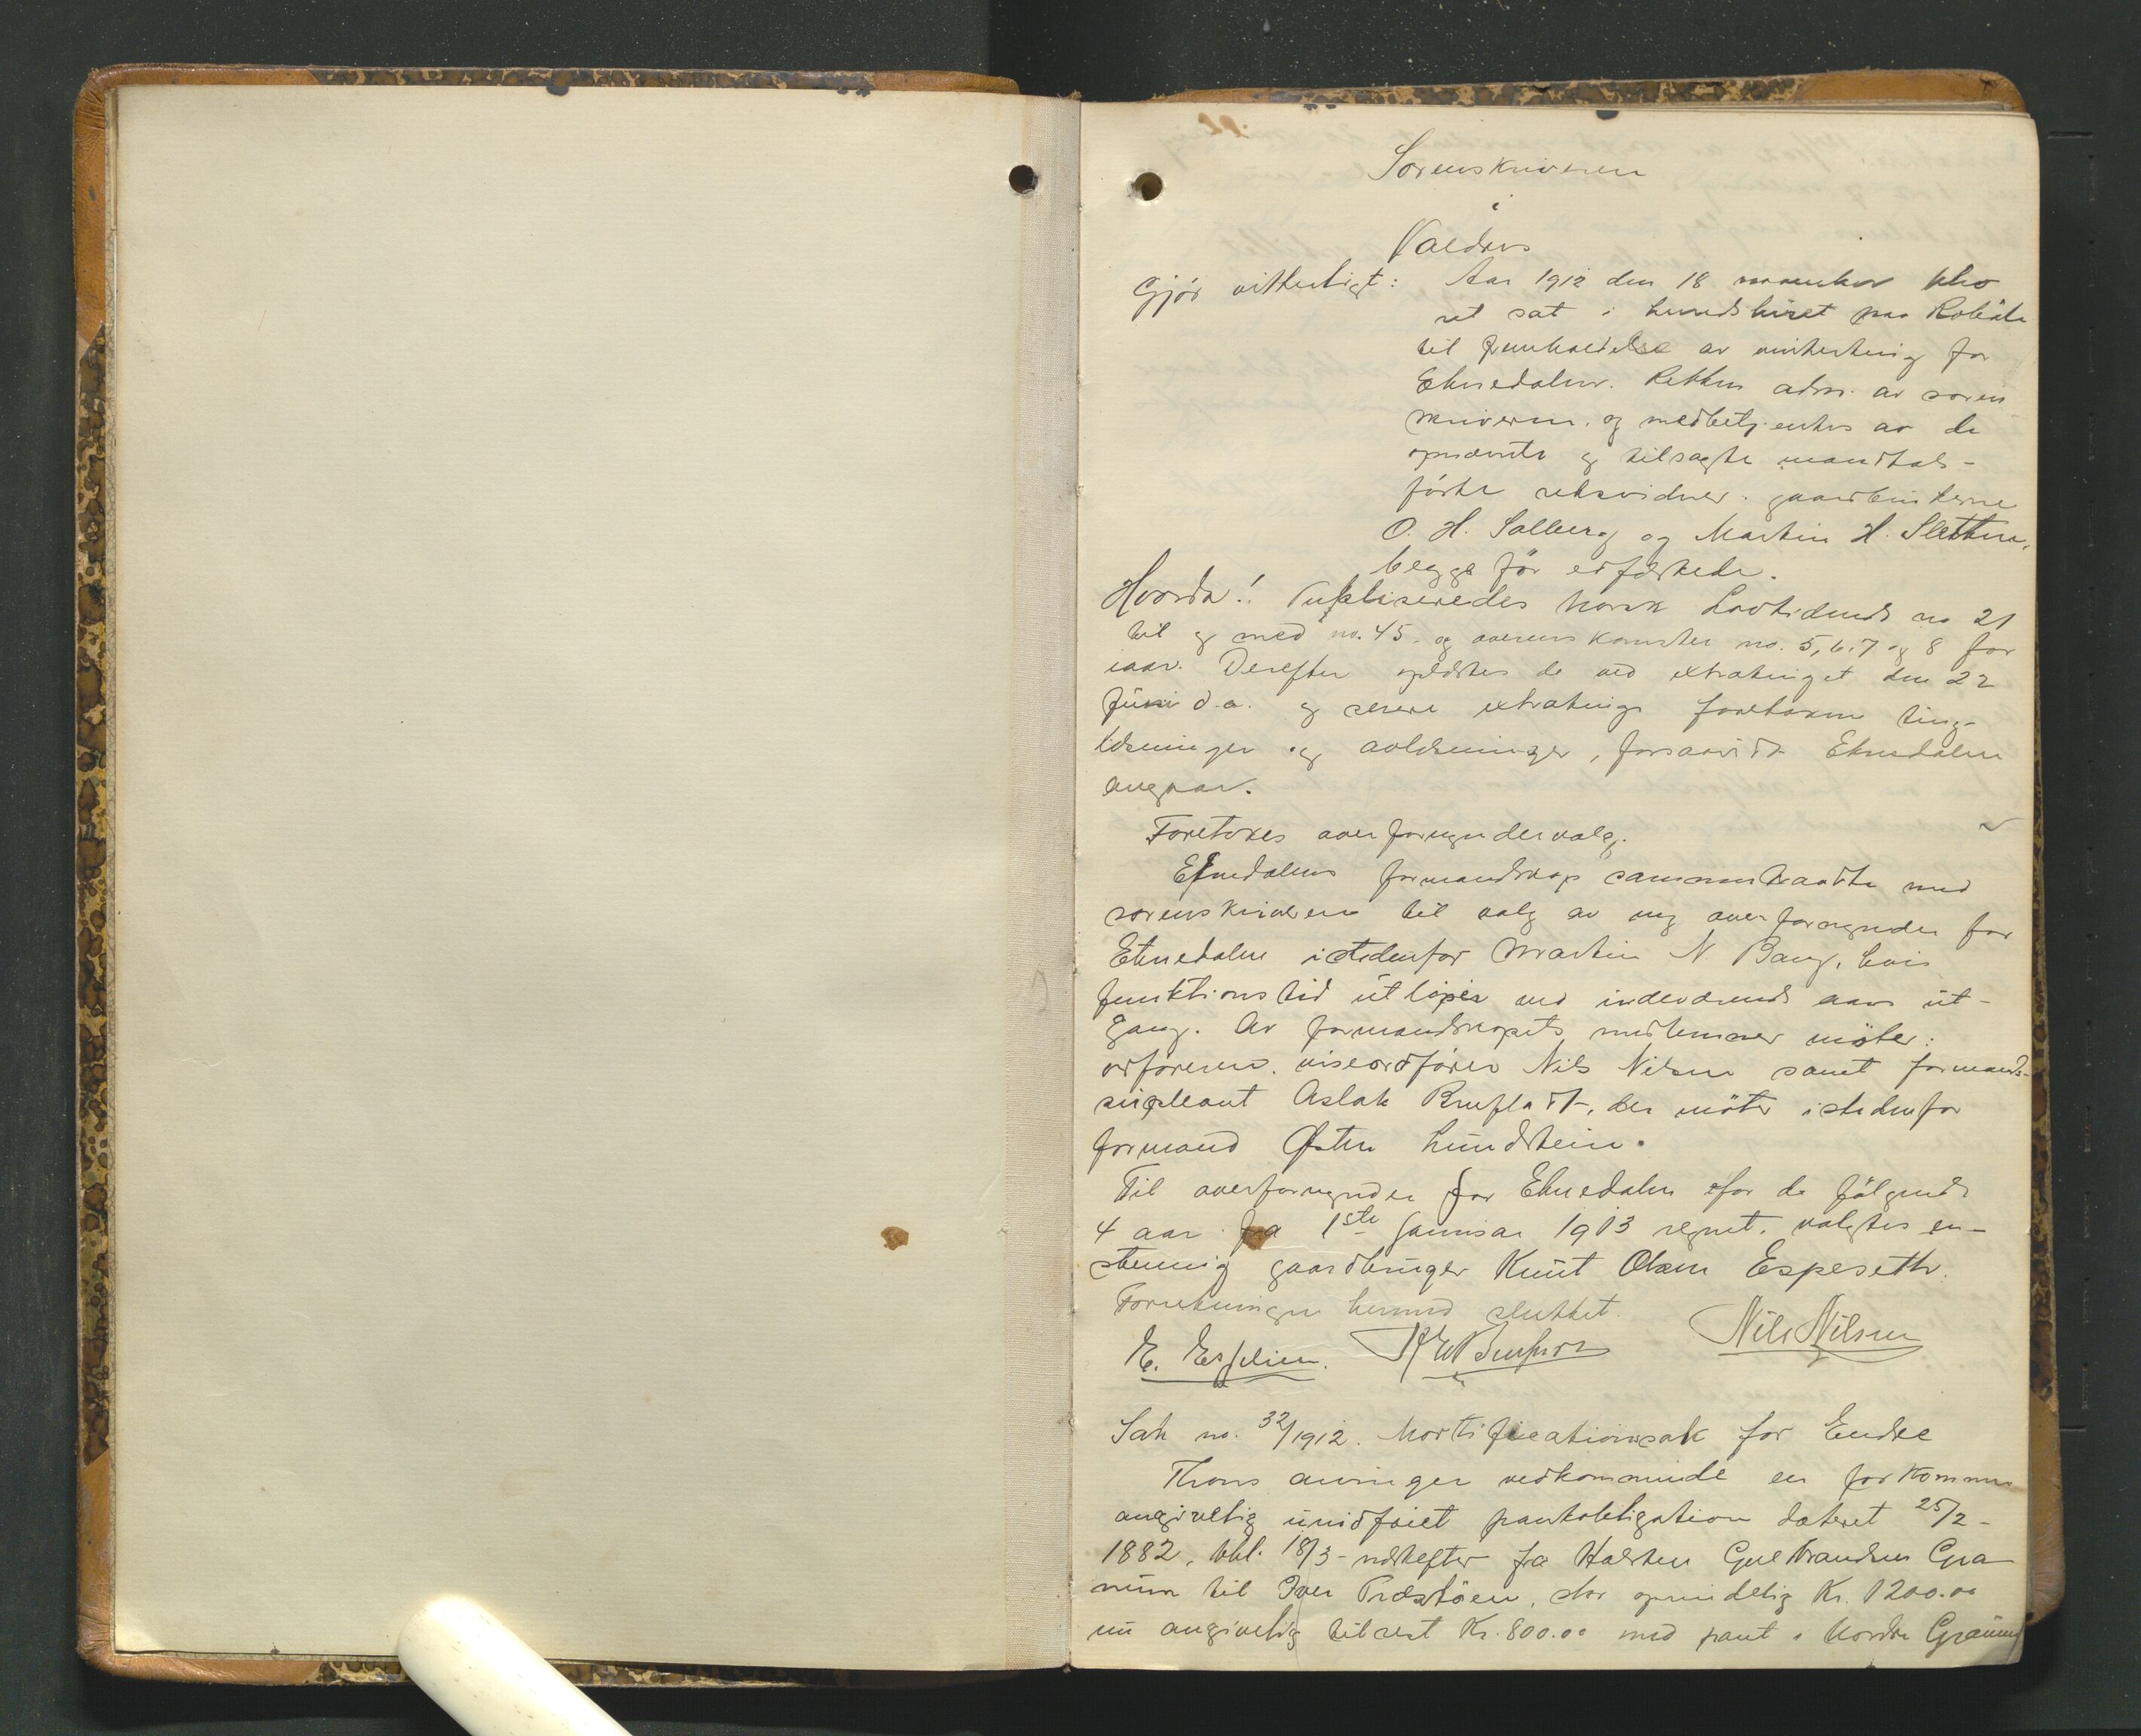 Sorenskriveren
i
Valdres
Gjör vitterligt: Aar 1912 den 18 november blev
ret sat i herredshuset paa
til avholdelse av vinterting for
Etnedalen. Retten adm. av soren
skriveren og medbetjentes av de
opnævnte og tilsagte mandtals-
förte retsvidner: gaardbrukerne
O. H. Solberg og Martin H. Sletten,
begge för edfæstede.
Hvorda! Publiseredes Norsk Lovtidende no 21
til og med no. 45. og overenskomster no. 5, 6, 7 og 8 for
iaar. Derefter oplæstes de ved extratinget den 22
juni d.a. og senere extrating foretagne ting-
læsninger og avlæsninger, forsaavidt Etnedalen
angaar.
Foretokes overformyndervalg.
Etnedalens formandskap sammentraadte med
sorenskriveren til valg av ny overformynder for
Etnedalen istedenfor Martin N. Bang, hvis
funktionstid utlöper ved indeværende aars ut-
gang. Av formandskapets medlemmer möter:
ordföreren, viseordförer Nils Nilsen samt formands-
supleant Aslak Brufladt, der möter istedenfor
formand Østen Lundstein.
Til overformynder for Etnedalen for de fölgende
4 aar fra 1ste januar 1913 regnet, valgtes en-
stemmig gaardbruger Knut Olsen Espeseth.
Forretningen hermed sluttet.
E. Espelien. Nils Nilsen
Sak no. 32/1912. Mortificationssak for Endre
Thons arvinger vedkommende en forkommen
angivelig uindfriet pantobligation dateret 25/2-
1882, thl. 18/3- næstefter fra Halsten Gulbrandsen Gra-
num til Iver Præstöen, stor oprindelig Kr. 1200.00
nu angivelig tilrest Kr. 800.00 med pant i Nordre Granum